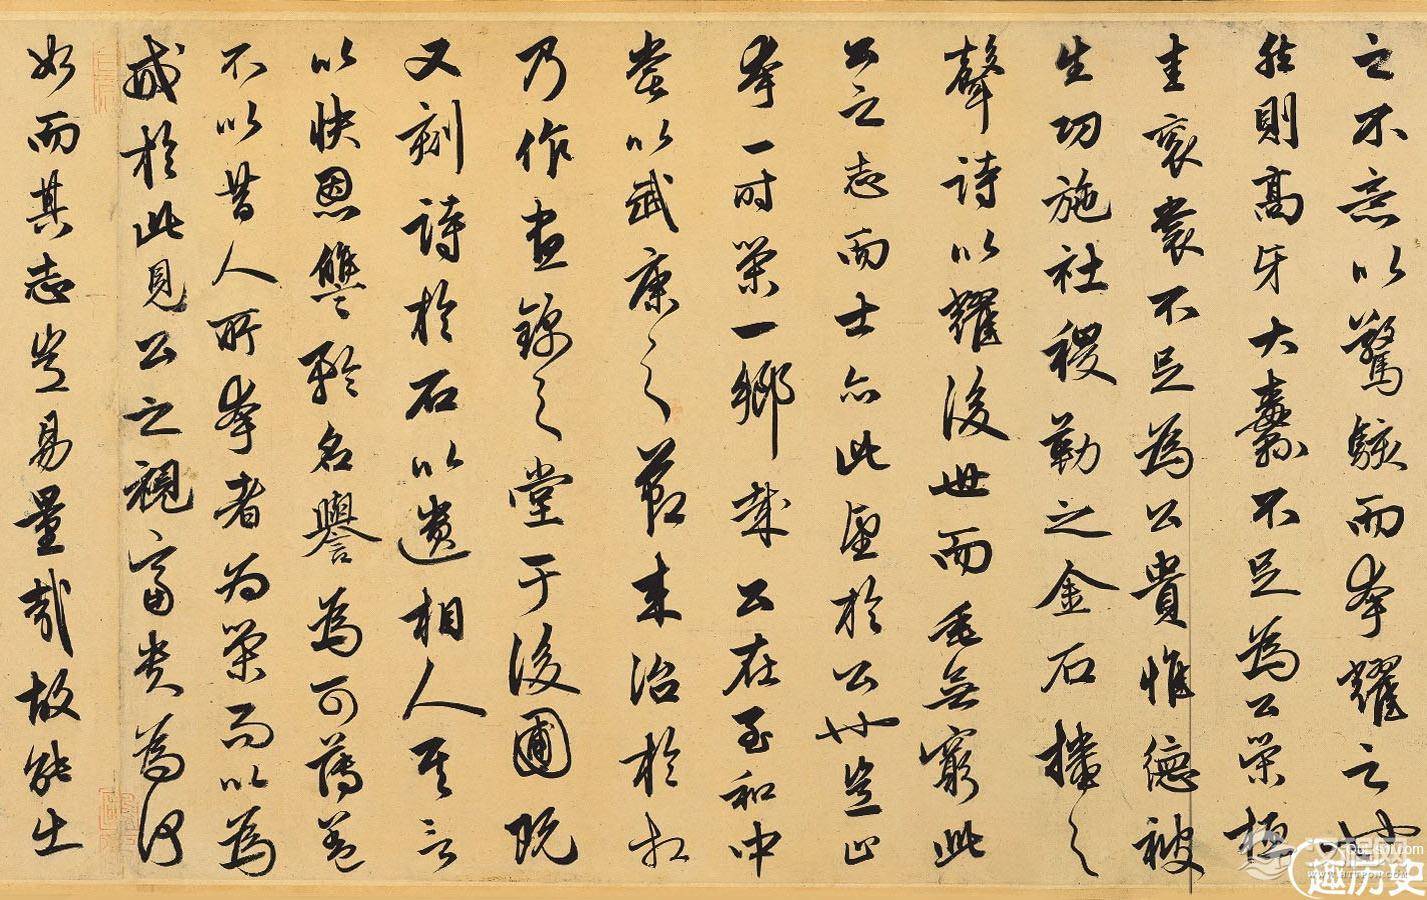 之不意以驚駭而夸耀之也
然則高牙大纛不足為公榮桓
圭袞裳不足為公貴惟德被
生功施社稷勒之金石播之
聲詩以耀後世而垂無窮此
公之志而士亦此望於公也豈止
夸一時榮一鄉哉公在至和中
嘗以武康之節來治於相
乃作晝錦之堂于後圃既
又刻詩於石以遺相人其言
以快恩讎矜名譽為可薄蓋
不以昔人所夸者為榮而以為
戒於此見公之視富貴為何
如而其志豈易量哉故能出
趣历史